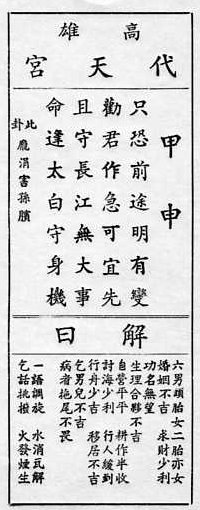 高雄
代天宮
甲申
只恐前途明有變
勸君作急可宜先
且守長江無大事
命逢太白守身機
此卦 龐涓害孫臏
解曰
六男頭胎女二胎亦女
婚姻不吉 求財少利
功名無望
生理合夥不吉
自營平平 耕作半收
討海少利 行人緩到
行舟少吉 移居不吉
乞男兒不吉
病者拖尾不畏
一語調旋 水消瓦解
乞話挑撥 火發煙生